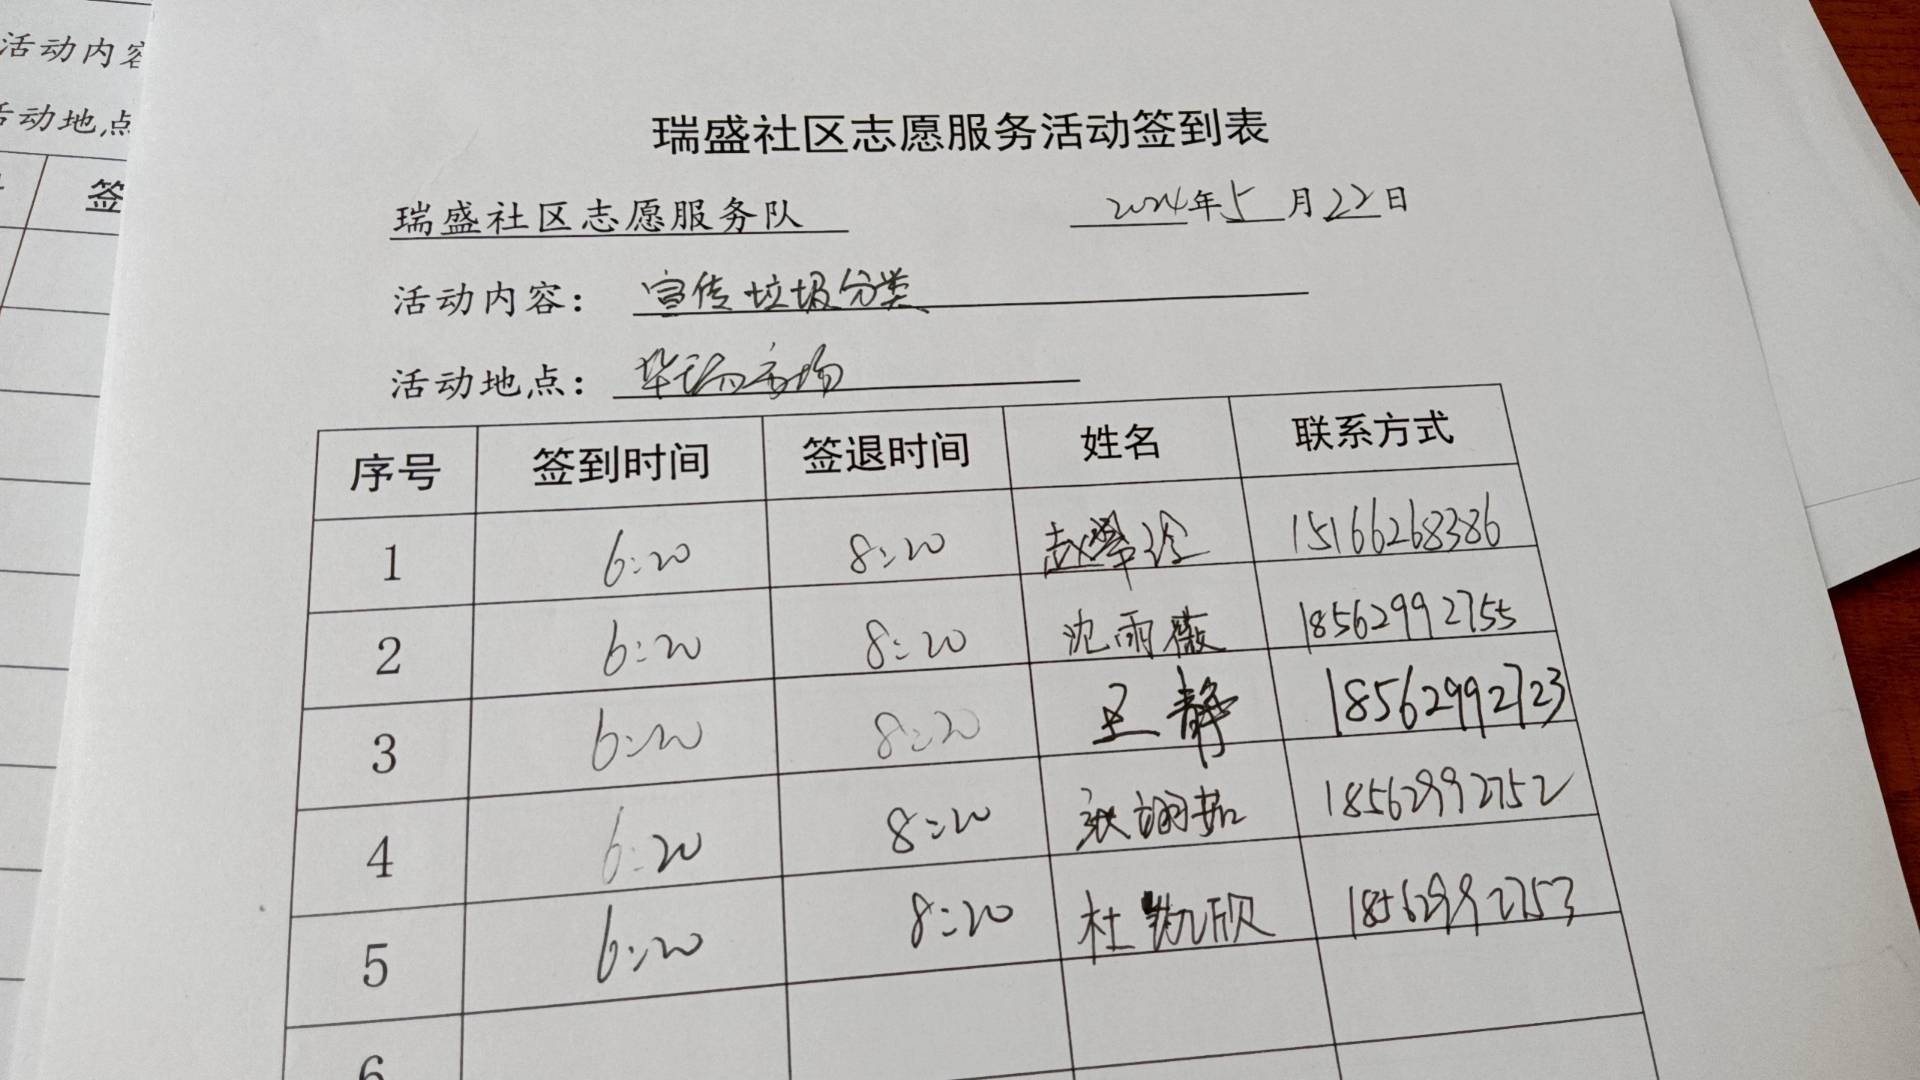 活动内容
活动地点
签
瑞盛社区志愿服务活动签到表
瑞盛社区志愿服务队 2024年5月22日
活动内容： 宣传垃圾分类
活动地点： 华瑞市场
序号 签到时间 签退时间 姓名 联系方式
1 6:20 8:20 赵 15166268386
2 6:20 8:20 沈雨薇 18562992755
3 6:20 8:20 王静 18562992723
4 6:20 8:20 张翊茹 18562992752
5 6:20 8:20 杜凯欣 18562992753
6